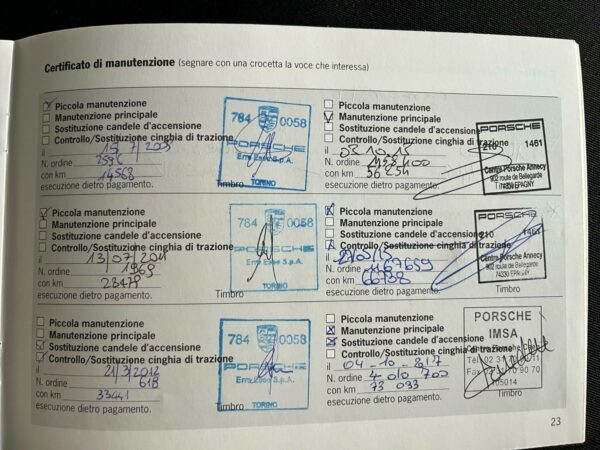 Certificato di manutenzione (segnare con una crocetta la voce che interessa)
Piccola manutenzione
Manutenzione principale
Sostituzione candele d'accensione
Controllo/Sostituzione cinghia di trazione
il
N. ordine
con km 14568
esecuzione dietro pagamento.
Timbro
784 0058
PORSCHE
Erre Esse S.p.A.
TORINO
Piccola manutenzione
Manutenzione principale
Sostituzione candele d'accensione
Controllo/Sostituzione cinghia di trazione
il 03.10.13
N. ordine
con km 56254
esecuzione dietro pagamento.
Timbro
PORSCHE
210 1461
Centre Porsche Annecy
902 route de Bellegarde
74330 EPAGNY
Piccola manutenzione
Manutenzione principale
Sostituzione candele d'accensione
Controllo/Sostituzione cinghia di trazione
il 13/07/2011
N. ordine 1969
con km 23479
esecuzione dietro pagamento.
Timbro
784 0058
PORSCHE
Erre Esse S.p.A.
TORINO
Piccola manutenzione
Manutenzione principale
Sostituzione candele d'accensione
Controllo/Sostituzione cinghia di trazione
il
N. ordine
con km 66738
esecuzione dietro pagamento.
Timbro
PORSCHE
210 1461
Centre Porsche Annecy
902 route de Bellegarde
74330 EPAGNY
Piccola manutenzione
Manutenzione principale
Sostituzione candele d'accensione
Controllo/Sostituzione cinghia di trazione
il 21/3/2012
N. ordine 618
con km 33441
esecuzione dietro pagamento.
Timbro
784 0058
PORSCHE
Erre Esse S.p.A.
TORINO
Piccola manutenzione
Manutenzione principale
Sostituzione candele d'accensione
Controllo/Sostituzione cinghia di trazione
il 04-10-
N. ordine
con km 73 033
esecuzione dietro pagamento.
Timbro
PORSCHE
IMSA
105014
23